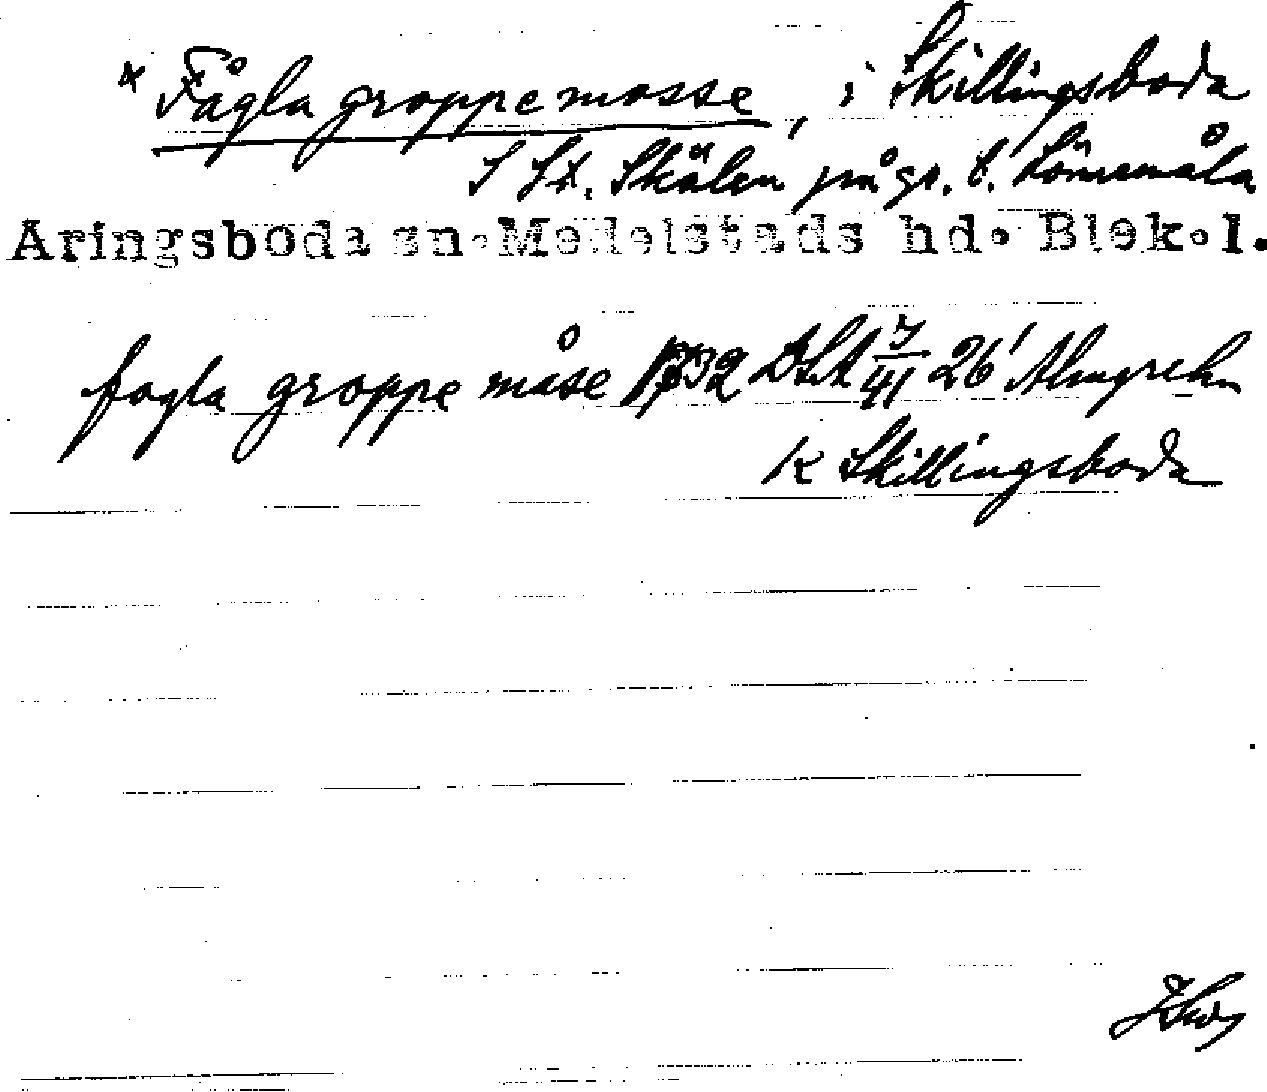 * Fågla groppemosse, i Skillingsboda
S St. Skälen på gr. t. Lönnemåla
Aringsboda sn. Medelstads hd. Blek.l.
fogla groppe måse 1732 LSA 7/41 26' Almgrehn
K Skillingsboda